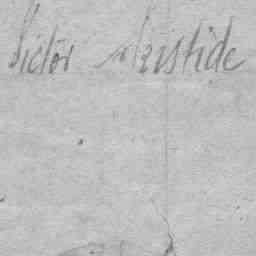 Victor Aristide